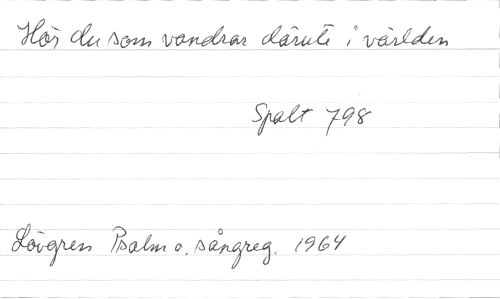 Hör du som vandrar därute i världen
Spalt 798
Lövgren Psalm o. sångreg. 1964